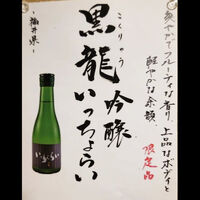 爽やかでフルーティな香り、上品なボディと
軽やかな余韻、
限定品
こくりゅう
黒龍 吟醸
いっちょらい
-福井県-
いっちょらい